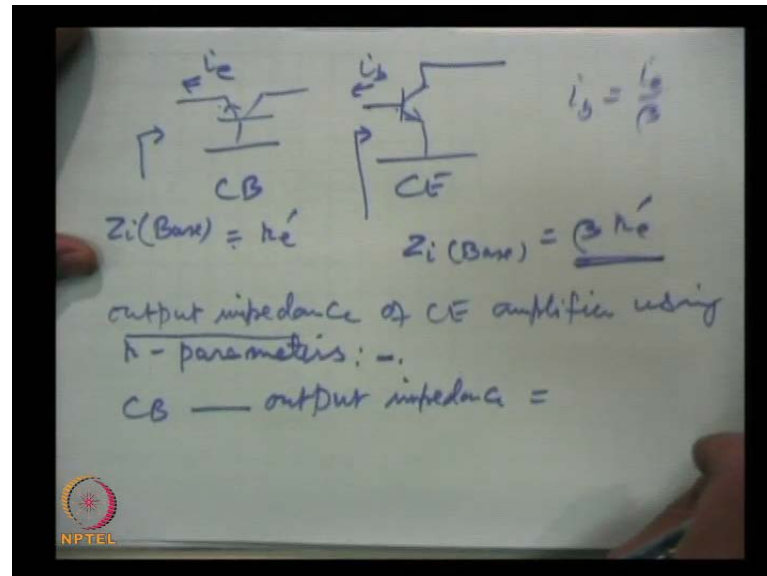 ie ib ib = ie/β
CB CE
Zi (Base) = re'
Zi (Base) = β re'
output impedance of CE amplifier using
r - parameters : -.
CB — output impedance =
NPTEL